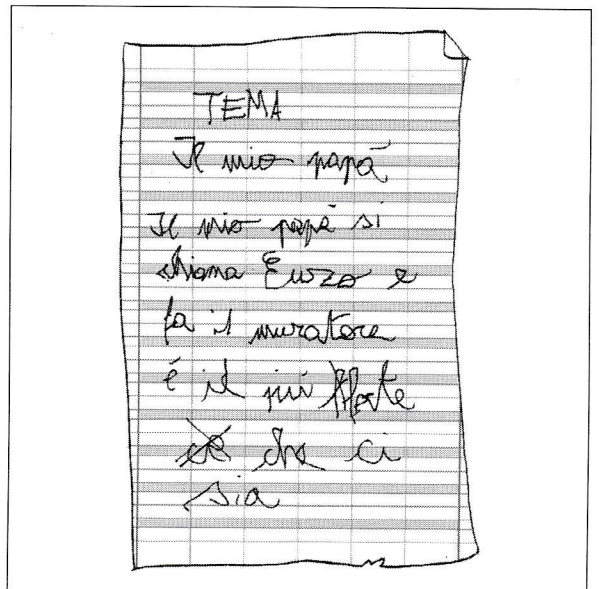 TEMA
Il mio papà
Il mio papà si
chiama Enzo e
fa il muratore
è il più forte
che ci
sia